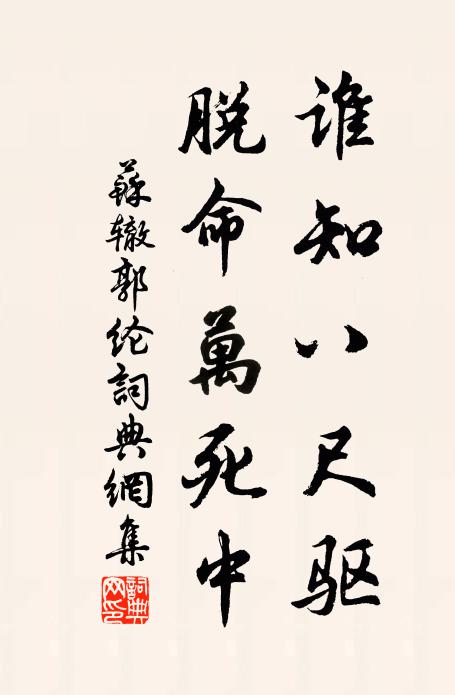 谁知八尺驱
脱命萬死中
蘇辙郭纶詞典網集
詞典网印